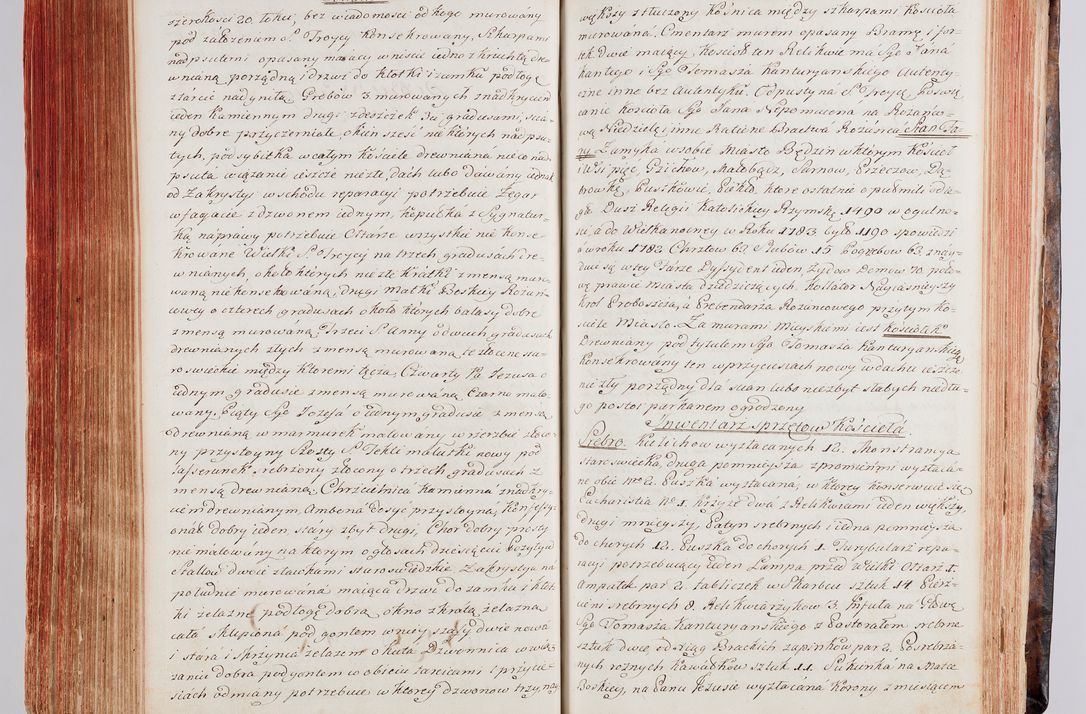 szerokości 20. łokci, bez wiadomości od kogo murowany
pod założeniem S. Troycy Konsekrowany, Szkarpami
nad psutemi opasany maiący wniście iedno z kruchtą dre-
wnianą porządną i drzwi do kłotki i zamku podłogę
z tarcic nadgniłą. Grobów 3 murowanych z nadkryciem
ieden kamiennym drugi z deszczek 3ci gradusami, scia-
ny dobre przyczerniałe, okien sześć na których nadpsu-
tych, podsybitka w całym kościele drewniana nieco nad-
psuta wiązanie ieszcze niezłe, dach lubo dawany iednak
od Zakrystyi wschodu reparacyi potrzebuie Zegar
w facyacie z dzwonem iednym, kopułka z Sygnatur-
ką naprawy potrzebuie Ołtarze wszystkie nie konse-
krowane Wielki S. Troycy na trzech gradusach dre-
wnianych, około których niezłe kratki z mensą muro-
waną nie konsekrowaną, drugi Matki Boskiey Rożań-
cowey o czterech gradusach około których balasy dobre
z mensą murowaną Trzeci S. Anny o dwoch gradusach
drewnianych złych z mensą murowaną te złocone sta-
roswieckie między któremi tęcza, Czwarty Pa. Jezusa o
iednym gradusie z mensą murowaną Czarno malo-
wany, Piąty Sgo Jozefa o iednym gradusie z mensą
drewnianą w marmurek malowany w rzezbie złoco-
ny przystoyny Szosty S. Tekli malutki nowy pod
lasserunek srebrzony złocony o trzech gradusach z
mensą drewnianą, Chrzcielnica kamienna z nadkry-
ciem drewnianym, Ambona dosyć przystoyna, Konfessy-
onał dobry ieden stary zbyt drugi, Chor dobry prosty
nie malowany na ktorym o głosach dziesięciu Pozytyw
Stallow dwoie z ławkami staroswieckie. Zakrystyia na
południe murowana maiąca drzwi do zamku i kłot-
ki żelazne podłogę dobrą, okno z kratą żelazną
cała sklepiona pod gontem w niey szafy dwie nowa
i stara i skrzynia żelazem okuta Dzwonnica w wią-
zaniu dobra pod gontem w obiciu tarcicami i przycie-
siach odmiany potrzebuie w ktorey dzwonow trzy, nay
większy ztłuczony Kośnica między szkarpami Kościoła
murowana. Cmentarz murem opasany Bramę i for-
tek Dwie maiący, kosciół ten Relikwie ma Sgo Jana
kantego i Sgo Tomasza Kanturyanskiego Autenty-
czne inne bez Autentyku. Odpusty na S. Troycę, Poswię-
canie kościoła Sgo Jana Nepomucena na Rożańco-
wą Niedzielę i inne Ratione Bractwa Rożańca, Stan Fa-
ry Zamyka w sobie Miasto Będzin w którym Kościoł
i Wsi pięć, Gzichow, Małobądz, Sarnow, Grzeczow, Dą-
browkę, Puszkowie, Pękło, ktore ostatnie o puł mili odle-
głe. Dusz Religii Katolickiey Rzymskiey 1490 w ogulno-
sci, a do Wielkanocney w Roku 1783 było 1190 spowiedzi
a w roku 1782 Chrztow 62. Szlubów 15. Pogrzebow 63. znay-
duie się w tey Farze Dyssydent ieden Żydow Domow 70. poło-
wę prawie Miasta dziedziczących, Kollator Nayjaśnieyszy
Krol Proboszcza, i Prebendarza Rożancowego przy tym ko-
sciele Miasto. Za murami Mieyskiemi iest kościołek
Drewniany pod tytułem Sgo Tomasza Kanturyanskiego
Konsekrowany ten w przyciesiach nowy w dachu ieszcze
nie zły porządny dla scian lubo niezbyt słabych nadda-
go postoi parkanem ogrodzony
Inwentarz sprzętow Kościoła
Srebro. Kielichow wyzłacanych 12. Monstrancya
staroswiecka, druga pomnieysza z promieńmi wyzłaca-
ne obie No 2. Puszka wyzłacana, w ktorey konserwuie się
Eucharistia No 1. Krzyże dwa z Relikwiami ieden większy,
drugi mnieyszy, Patyn srebrnych i iedna pomnieysza
do chorych 12. Puszka do chorych 1. Turybularz repa-
racyi potrzebuiący ieden Lampa przed Wielki Ołtarz 1.
Ampułek par 2. Tabliczek w Skarbcu sztuk 14. Pierz-
cieni srebrnych 8. Relikwiarzykow 3. Infuła na Głowę
Sgo Tomasza Kanturyanskiego z Pastorałem srebrne
sztuk dwie, od sciąg Brackich zapinkow par 2. Posrebrza-
nych roznych kawałkow sztuk 11. Sukienka na Matce
Boskiey, na Panu Jezusie wyzłacana Korony z miesiącem